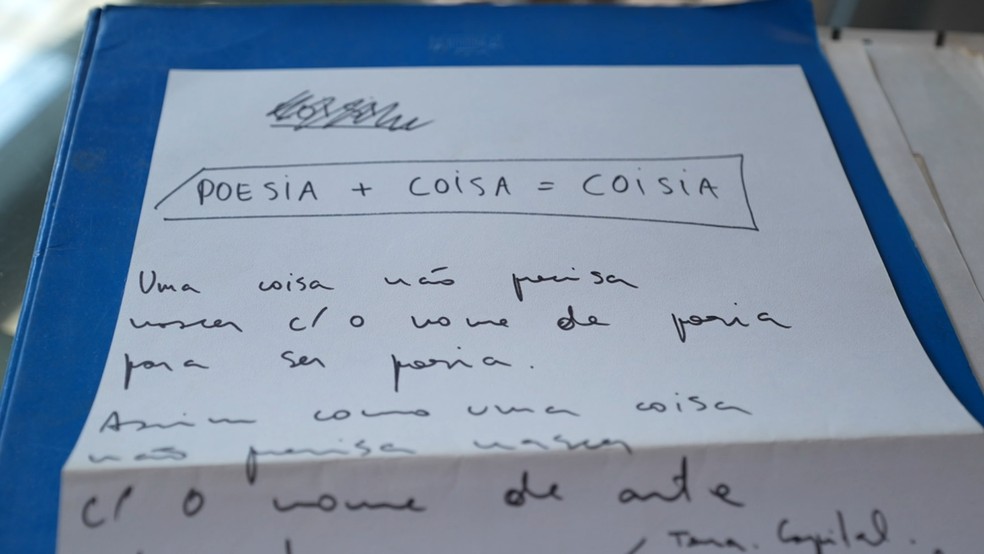 POESIA + COISA = COISIA
Uma coisa não precisa
nascer c/ o nome de poesia
para ser poesia.
Assim como uma coisa
não precisa nascer
c/ o nome de arte